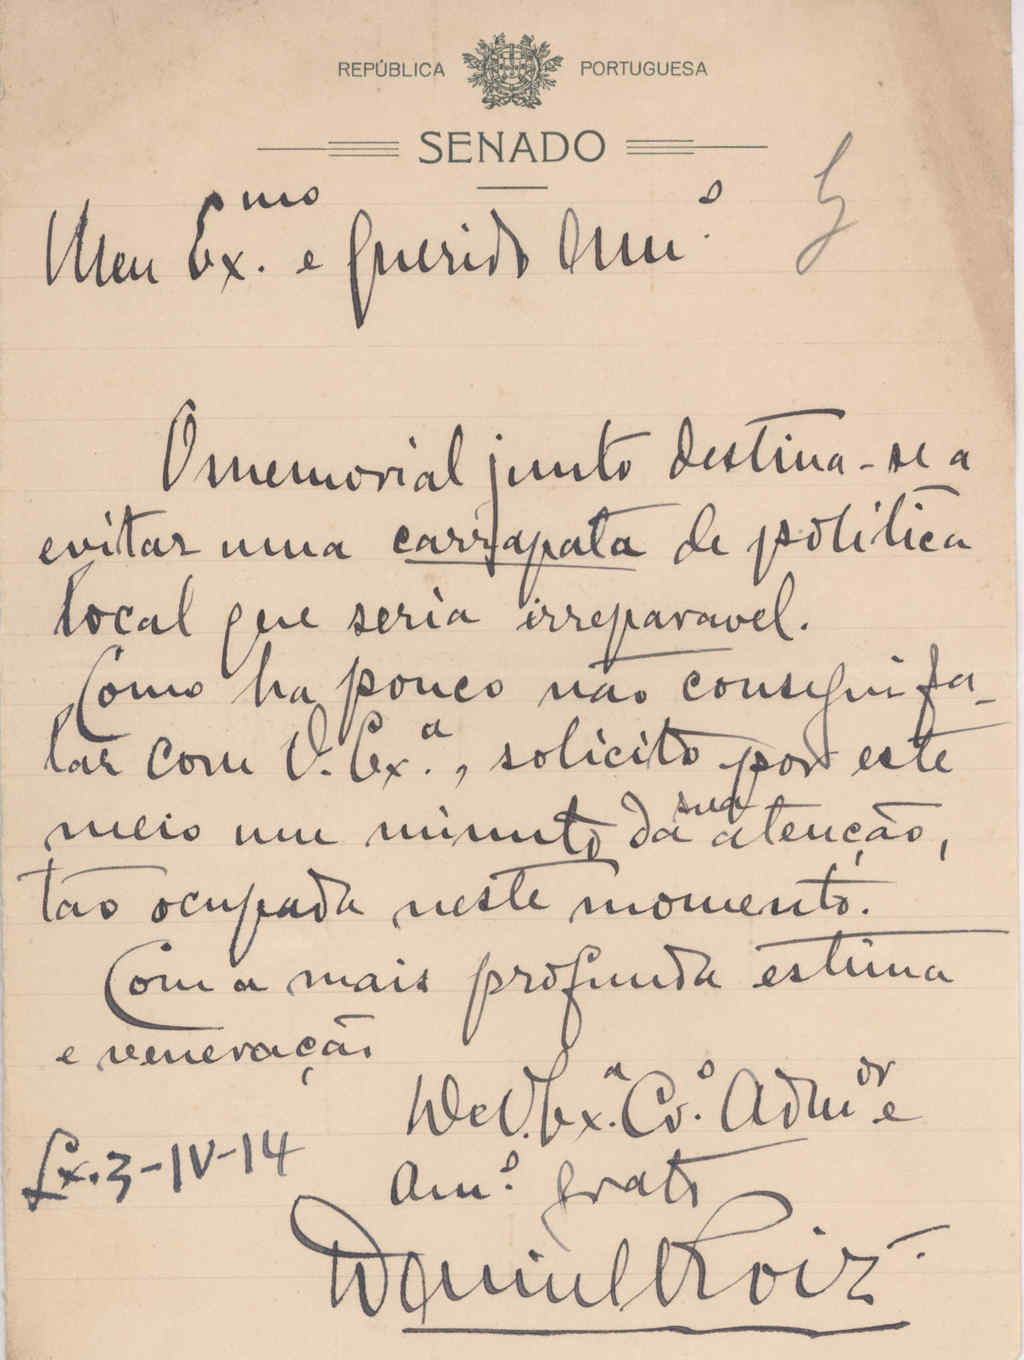 REPÚBLICA PORTUGUESA
SENADO
Meu Ex.mo e querido Am.o
O memorial junto destina-se a
evitar uma carrapata de politica
local que seria irreparavel.
Como ha pouco não consegui fa-
lar com V. Ex.a, solicito por este
meio um minuto da sua atenção,
tão ocupada neste momento.
Com a mais profunda estima
e veneração
De V. Ex.a Co.o Adm.or e
Am.o grato
Lx. 3-IV-14
Daniel Roiz.